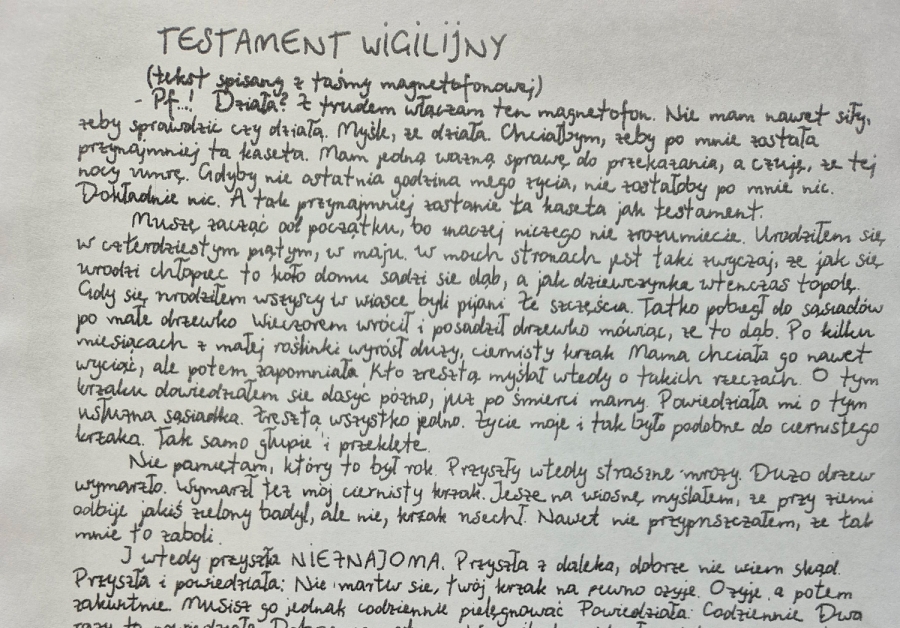 TESTAMENT WIGILIJNY
(tekst spisany z taśmy magnetofonowej)
- Pf...! Działa? Z trudem włączam ten magnetofon. Nie mam nawet siły,
żeby sprawdzić czy działa. Myślę, że działa. Chciałbym, żeby po mnie została
przynajmniej ta kaseta. Mam jedną ważną sprawę do przekazania, a czuję, że tej
nocy umrę. Gdyby nie ostatnia godzina mego życia, nie zostałoby po mnie nic.
Dokładnie nic. A tak przynajmniej zostanie ta kaseta jak testament.
Muszę zacząć od początku, bo inaczej niczego nie zrozumiecie. Urodziłem się
w czterdziestym piątym, w maju. W moich stronach jest taki zwyczaj, że jak się
urodzi chłopiec to koło domu sadzi się dąb, a jak dziewczynka wtenczas topolę.
Gdy się urodziłem wszyscy w wiosce byli pijani ze szczęścia. Tatko pobiegł do sąsiadów
po małe drzewko. Wieczorem wrócił i posadził drzewko mówiąc, że to dąb. Po kilku
miesiącach z małej roślinki wyrósł duży, ciernisty krzak. Mama chciała go nawet
wyciąć, ale potem zapomniała. Kto zresztą myślał wtedy o takich rzeczach. O tym
krzaku dowiedziałem się dosyć późno, już po śmierci mamy. Powiedziała mi o tym
usłużna sąsiadka. Zresztą wszystko jedno. Życie moje i tak było podobne do ciernistego
krzaka. Tak samo głupie i przeklęte.
Nie pamiętam, który to był rok. Przyszły wtedy straszne mrozy. Dużo drzew
wymarzło. Wymarzł też mój ciernisty krzak. Jesze na wiosnę myślałem, że przy ziemi
odbije jakiś zielony badyl, ale nie, krzak usechł. Nawet nie przypuszczałem, że tak
mnie to zaboli.
I wtedy przyszła NIEZNAJOMA. Przyszła z daleka, dobrze nie wiem skąd.
Przyszła i powiedziała: Nie martw się, twój krzak na pewno ożyje. Ożyje, a potem
zakwitnie. Musisz go jednak codziennie pielęgnować. Powiedziała: Codziennie. Dwa
razy to powiedziała.